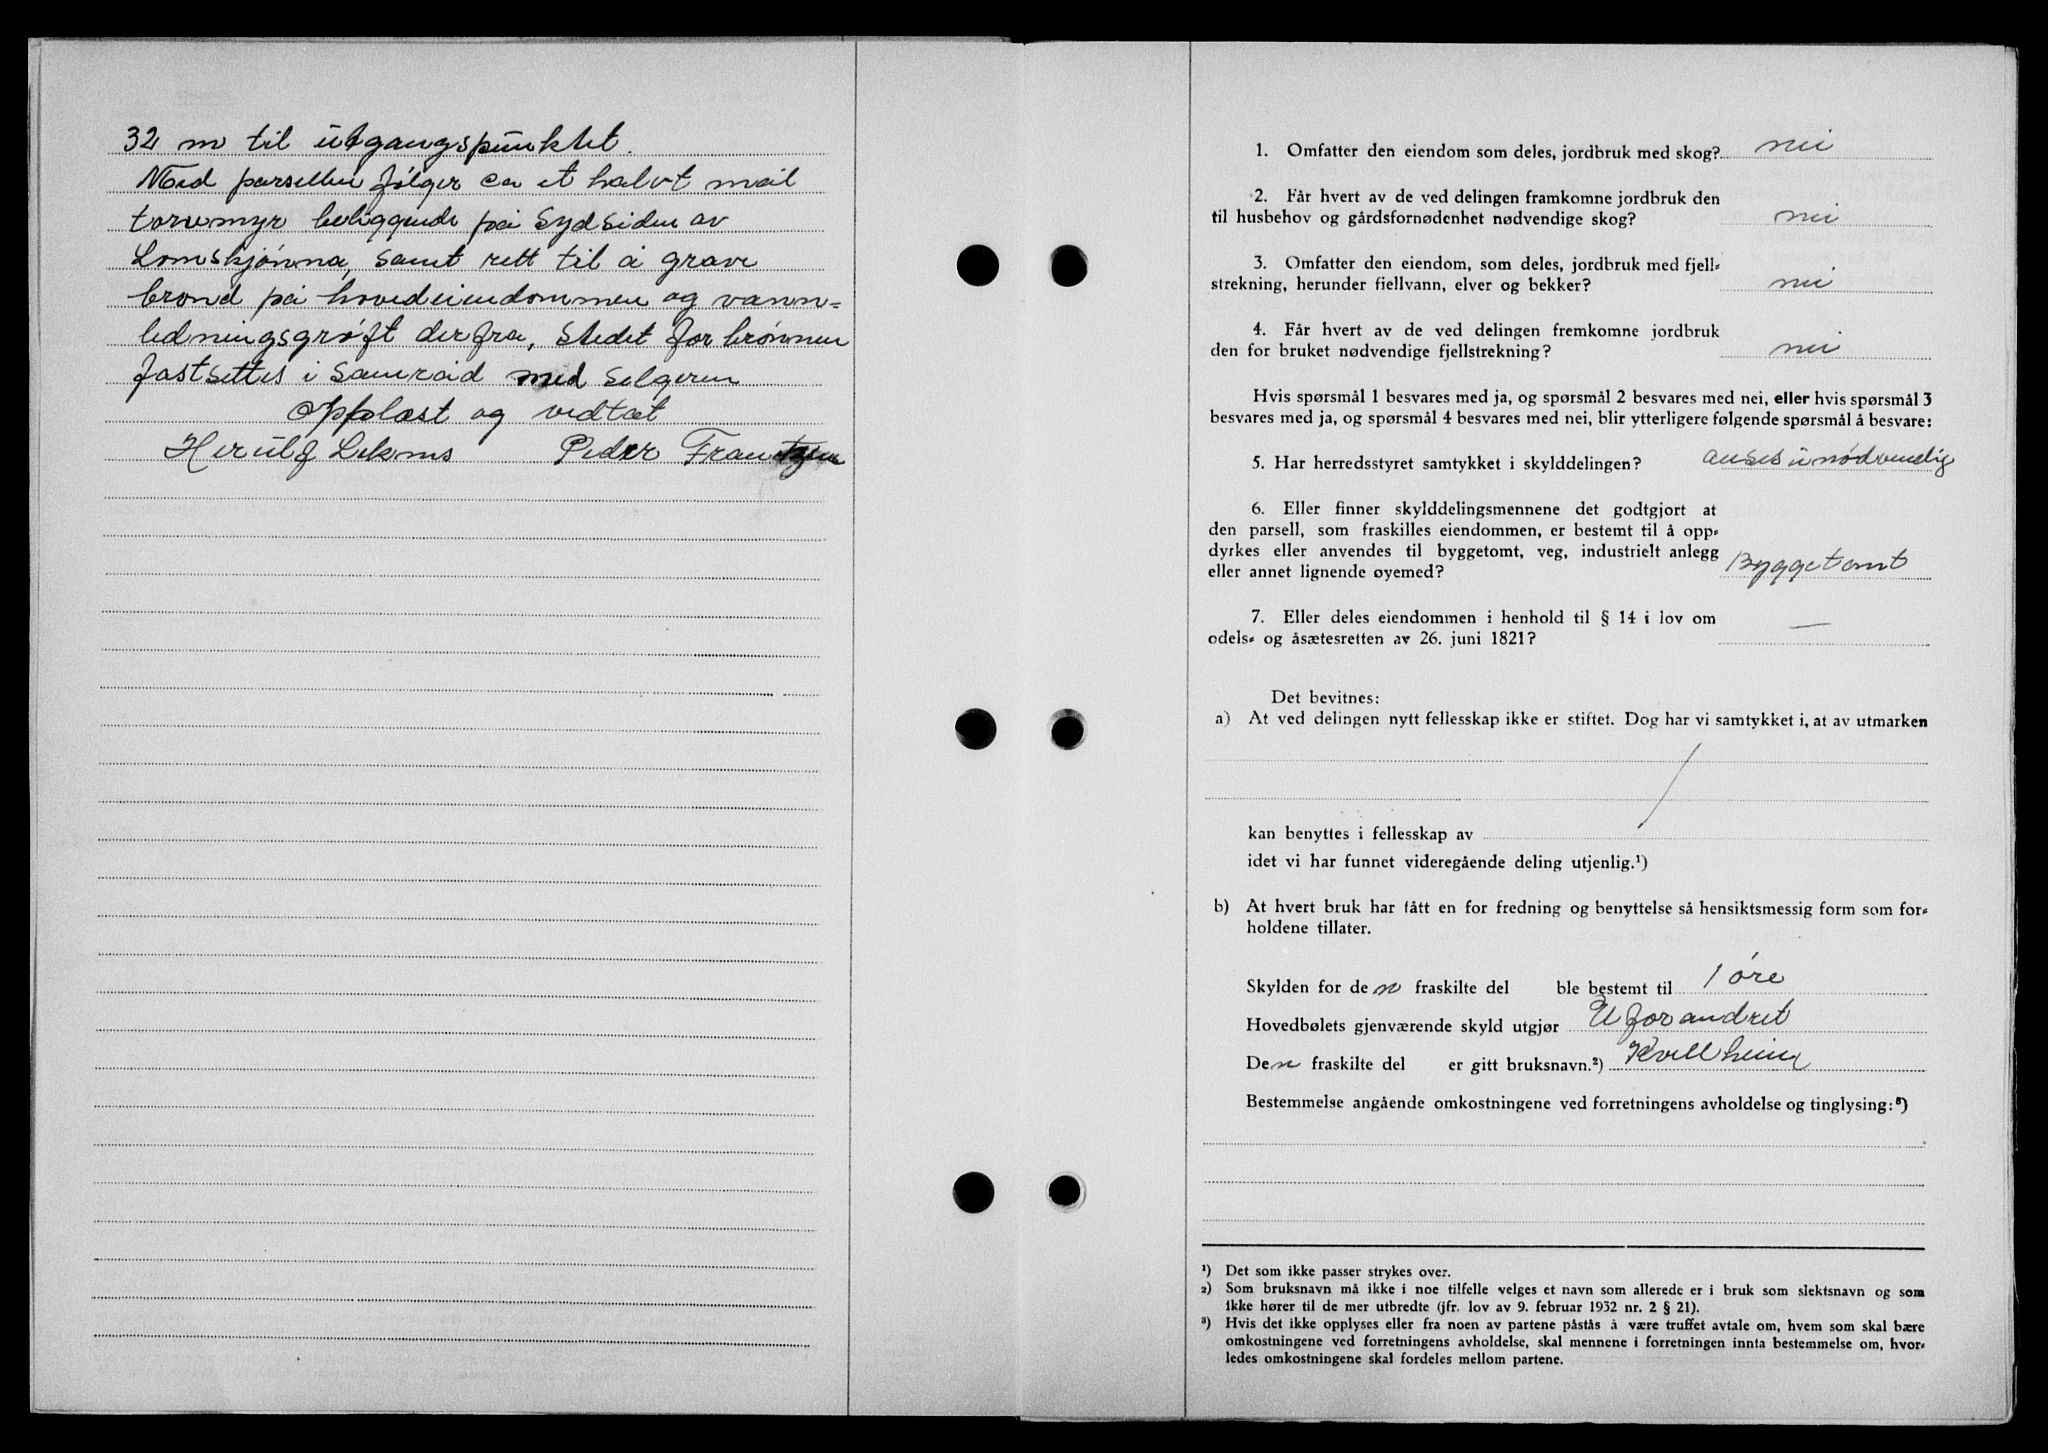 32 m til utgangspunktet.
Med parsellen følger ca et halvt mål
torvmyr beliggende på Sydsiden av
Lomskjønna, samt rett til å grave
brønd på hovedeiendommen og vann=
ledningsgrøft derfra, Stedet for brønnen
fastsettes i Samråd med Selgeren
Opplæst og vedtat
Herulf Peder Frantzen
1. Omfatter den eiendom som deles, jordbruk med skog? nei
2. Får hvert av de ved delingen framkomne jordbruk den
til husbehov og gårdsfornødenhet nødvendige skog? nei
3. Omfatter den eiendom, som deles, jordbruk med fjell=
strekning, herunder fiellvann, elver og bekker? nei
4. Får hvert av de ved delingen fremkomne jordbruk
den for bruket nødvendige fjellstrekning? nei
Hvis spørsmål 1 besvares med ja, og spørsmål 2 besvares med nei, eller hvis spørsmål 3
besvares med ja, og spørsmål 4 besvares med nei, blir ytterligere følgende spørsmål å besvare:
5. Har herredsstyret samtykket i skylddelingen? anses unødvendig
6. Eller finner skylddelingsmennene det godtgjort at
den parsell, som fraskilles eiendommen, er bestemt til å opp=
dyrkes eller anvendes til byggetomt, veg, industrielt anlegg
eller annet lignende øyemed? Byggetomt
7. Eller deles eiendommen i henhold til § 14 i lov om
odels= og åsætesretten av 26. juni 1821? —
Det bevitnes:
a) At ved delingen nytt fellesskap ikke er stiftet. Dog har vi samtykket i, at av utmarken
kan benyttes i fellesskap av
idet vi har funnet videregående deling utjenlig.¹)
b) At hvert bruk har fått en for fredning og benyttelse så hensiktsmessig form som for=
holdene tillater.
Skylden for den fraskilte del ble bestemt til 1 øre
Hovedbølets gjenværende skyld utgjør Uforandret
Den fraskilte del er gitt bruksnavn.²) Kvellheim
Bestemmelse angående omkostningene ved forretningens avholdelse og tinglysing:³)
¹) Det som ikke passer strykes over.
²) Som bruksnavn må ikke i noe tilfelle velges et navn som allerede er i bruk som slektsnavn og som
ikke hører til de mer utbredte (jfr. lov av 9. februar 1932 nr. 2 § 21).
³) Hvis det ikke opplyses eller fra noen av partene påstås å være truffet avtale om, hvem som skal bære
omkostningene ved forretningens avholdelse, skal mennene i forretningen innta bestemmelse om, hvor=
ledes omkostningene skal fordeles mellom partene.